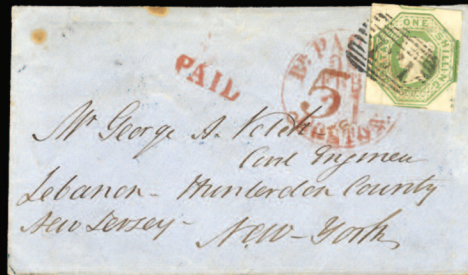 ONE SHILLING
PAID
BR. PA
5
BOSTON
Mr George A.
Civil Engineer
Lebanon - Hunterdon County
New Jersey -
New-York